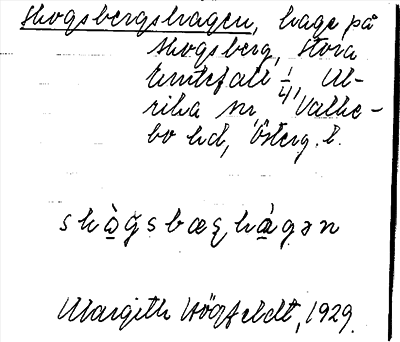 Skogsbergshagen, hage på
Skogsberg, Stora
Emtefall 1/4, Ul-
rika sn, Valke-
bo hd, Österg. l.
skò̱ğsbæꝛhà̱gən
Margith Högfeldt, 1929.